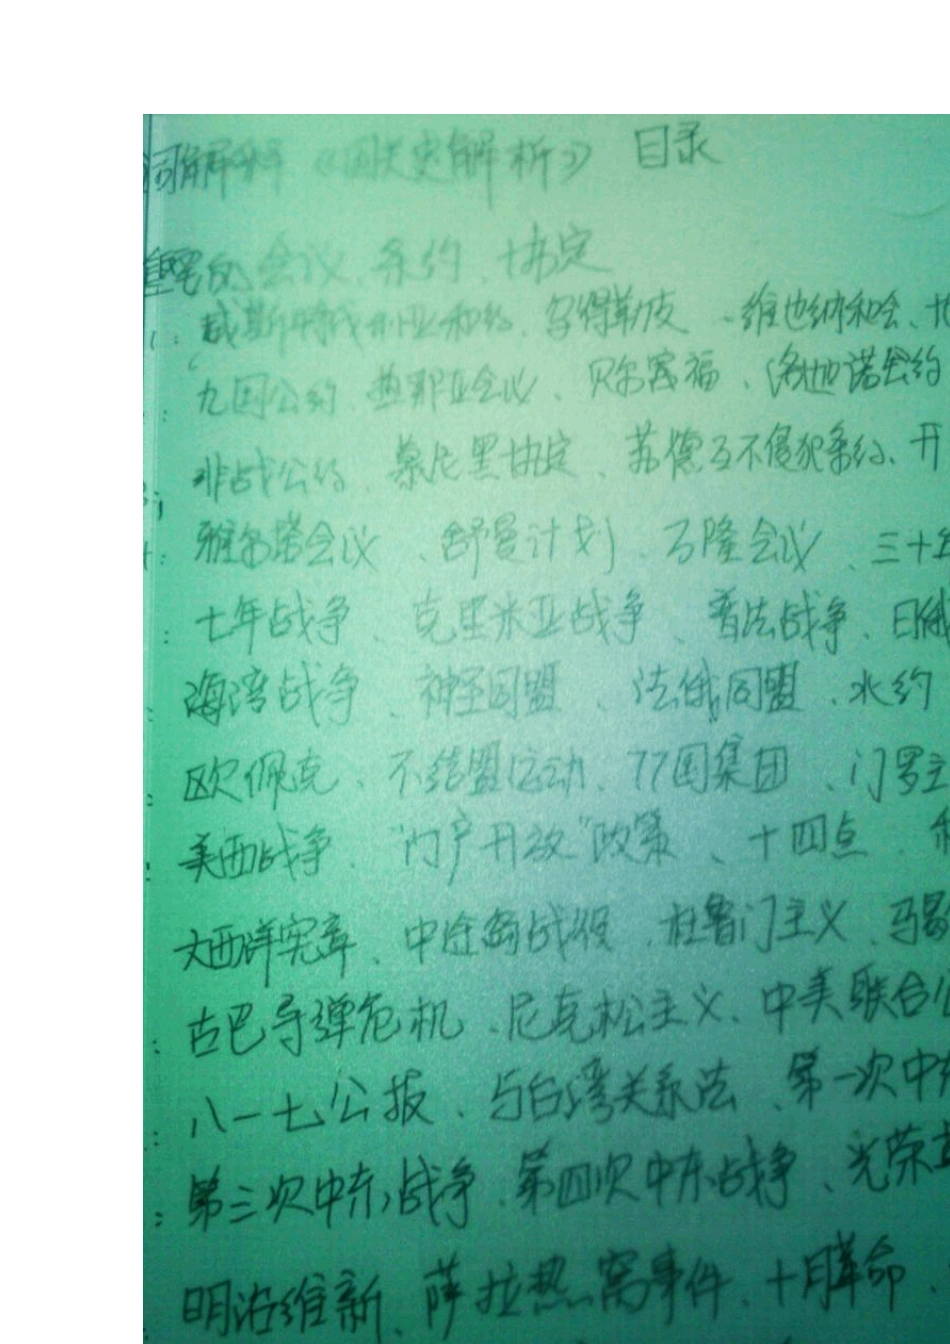 词解释 《国关史解析》 目录
会议、条约、协定
1: 威斯特伐利亚和约、乌得勒支、维也纳和会、
九国公约、热那亚会议、贝尔富福、洛迦诺公约
非战公约、慕尼黑协定、苏德互不侵犯条约、开
雅尔塔会议、舒曼计划、万隆会议、三十年
七年战争、克里米亚战争、普法战争、日俄
海湾战争、神圣同盟、法俄同盟、北约
欧佩克、不结盟运动、77国集团、门罗主
美西战争、"门户开放"政策、十四点、
大西洋宪章、中途岛战役、杜鲁门主义、马歇
古巴导弹危机、尼克松主义、中美联合公
八一七公报、与台湾关系法、第一次中
第三次中东战争、第四次中东战争、光荣革
明治维新、萨拉热窝事件、十月革命、